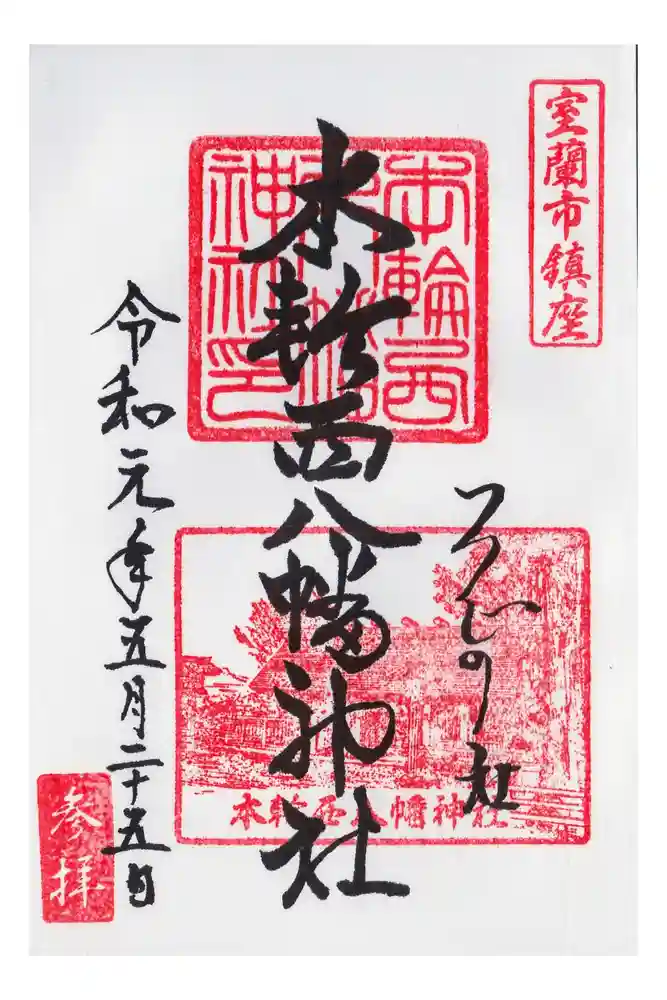 室蘭市鎮座
本輪西八幡神社印
本輪西八幡神社
の社
本輪西八幡神社
令和元年五月二十五日
参拝